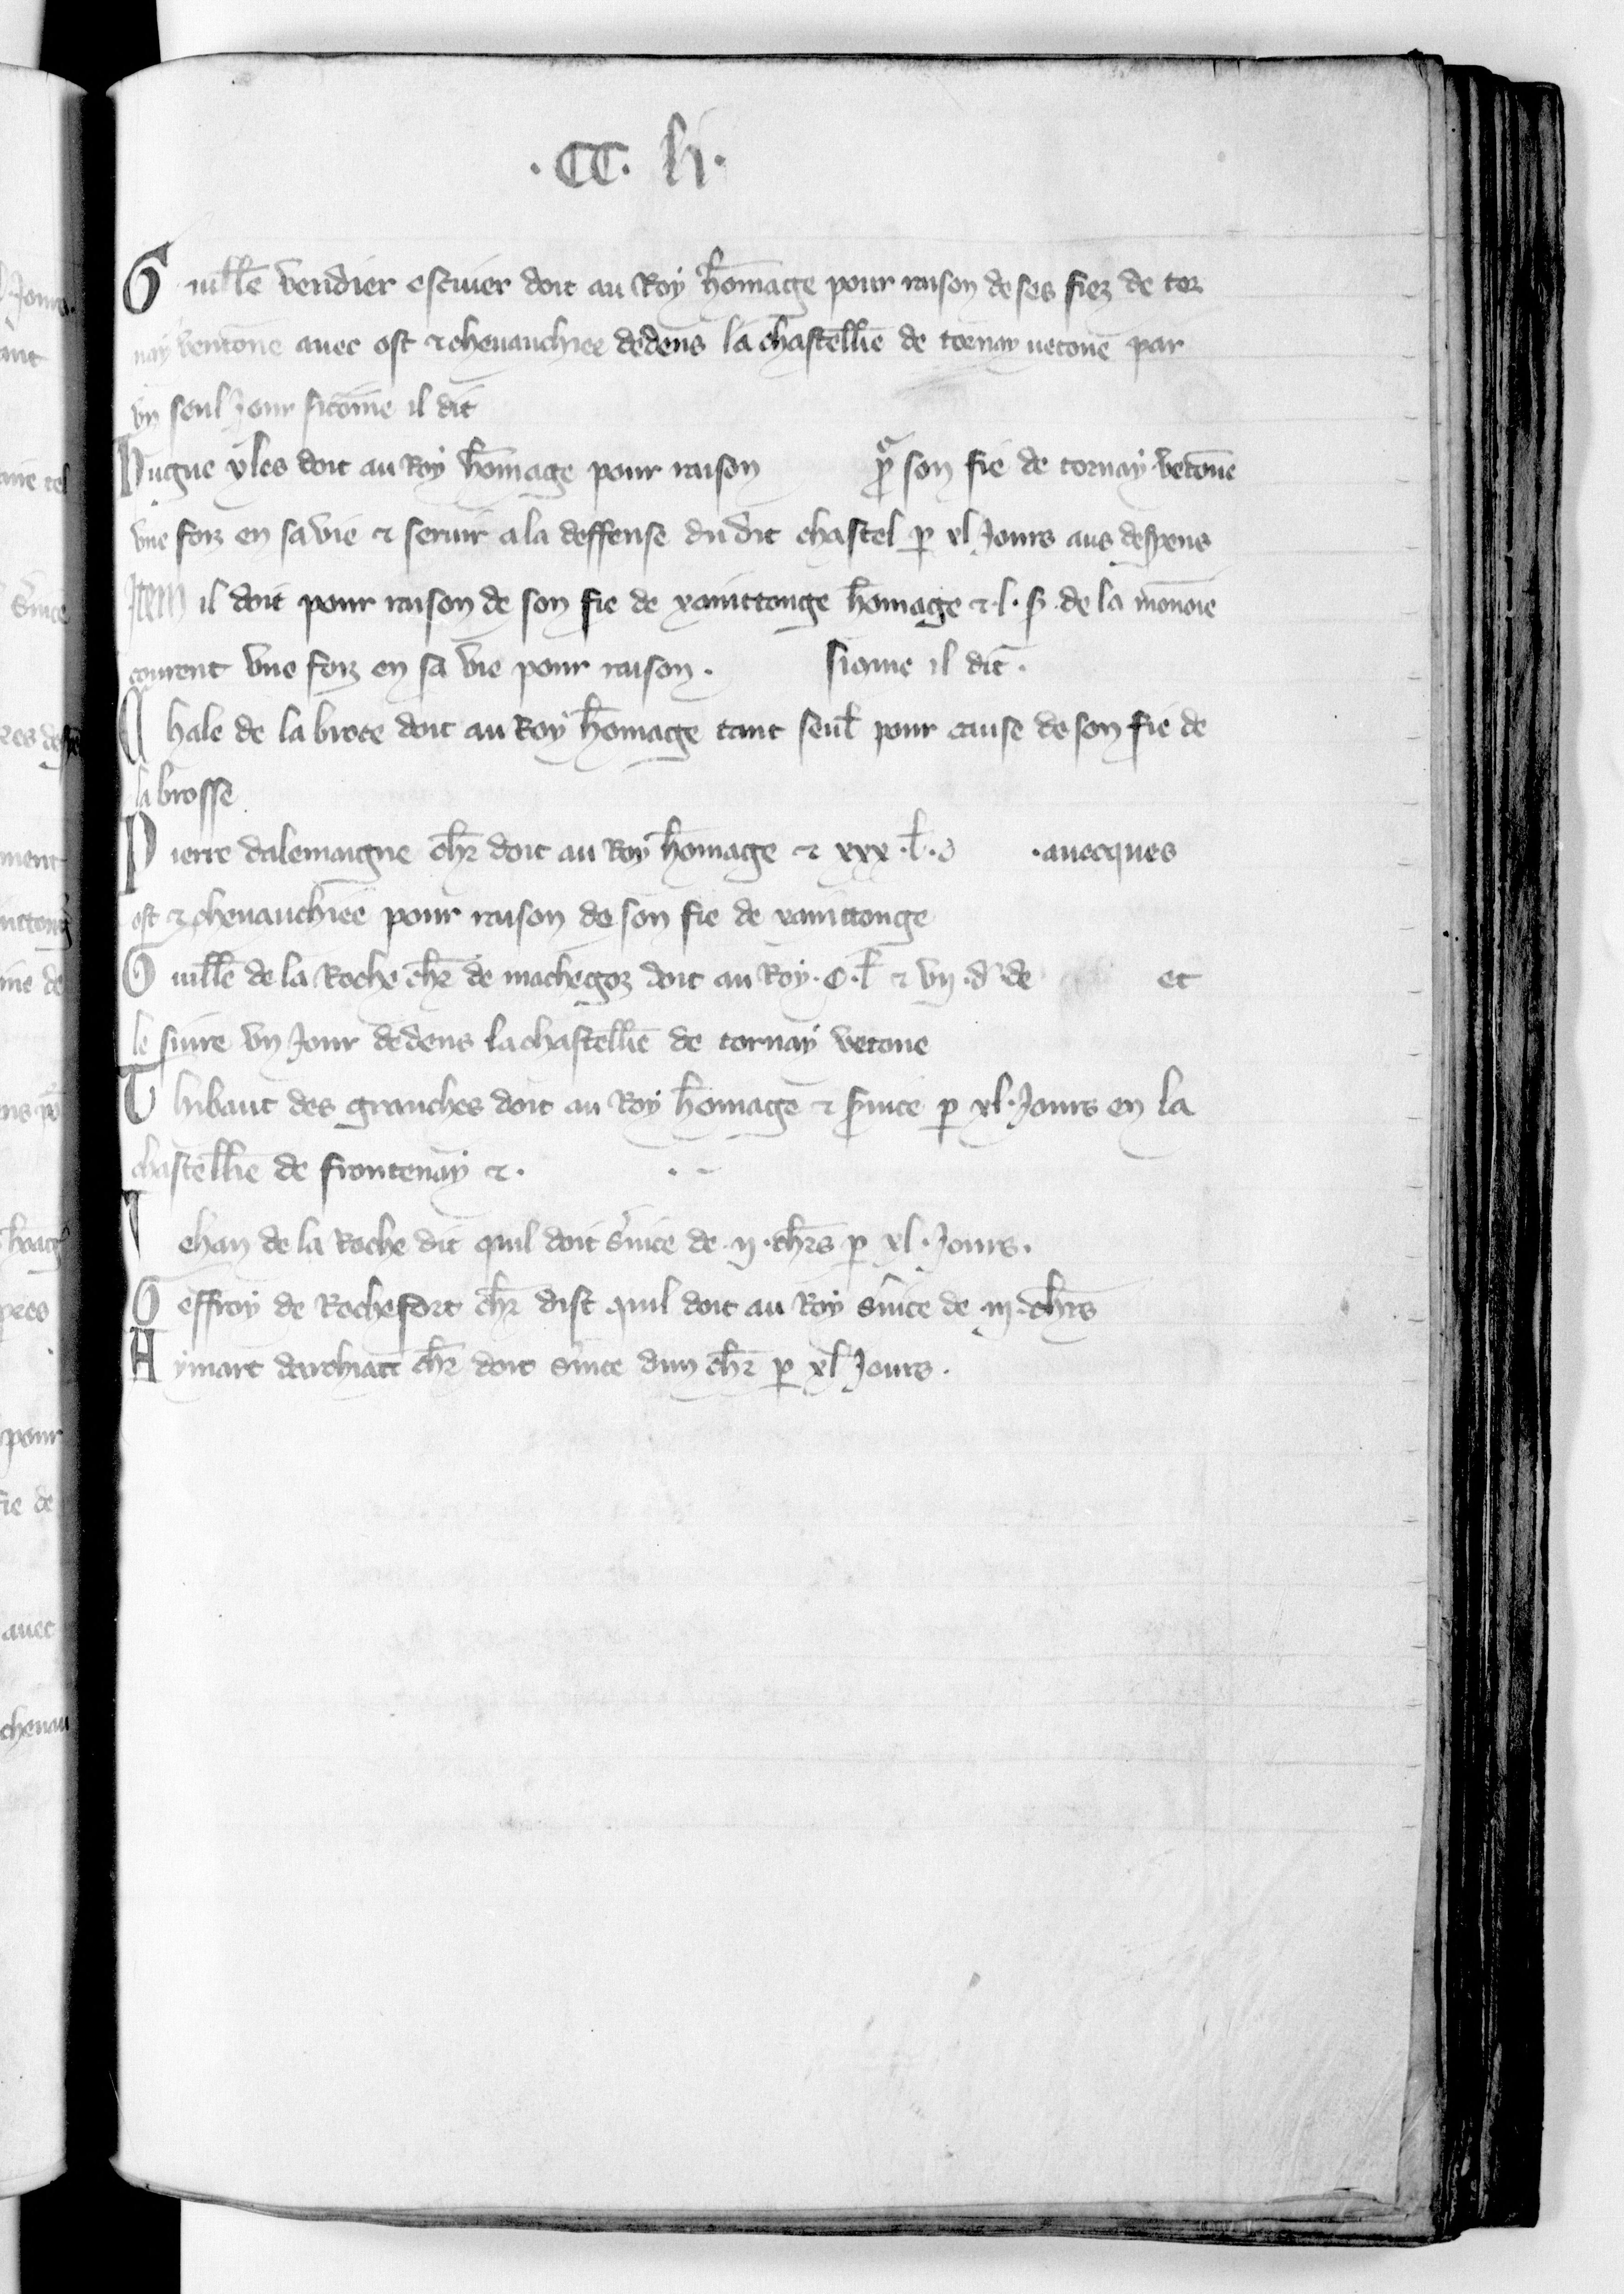 .CC. li.
Guillē verdier escuier doit au Roy hōmage pour raison de ses fiez de tor
nay ventone auec ost & cheuauchiee dedens la chastelliē de tornay uetone par
vn seul Jour sicōme il dit
Hugue doit au Roy hōmage pour raison pr son fie de tornay vetone
vne foiz en sa vie & seruir a la deffense du dit chastel p xl Jours aus despens
Item il doit pour raison de son fie de xainttonge hōmage & .l. s. de la monoie
courent vne foiz en sa vie pour raison. sicōme il dit.
Chale de la broce doit au Roy hōmage tant seul pour cause de son fie de
la brosse
Pierre dalemaigne chr doit au Roy hōmage & xxx .l. s .auecques
ost & cheuauchiee pour raison de son fie de xainttonge
Guillē de la Roche chr de machegoz doit au Roy .c. l & vij .d. de et
le suire vn Jour dedens la chastelliē de tornay vetone
Thibaut des granches doit au Roy hōmage & seruice p xl. Jours en la
chastelliē de frontenay & .
Jehan de la Roche dit quil doit suice de .ij. chrs p xl. Jours.
Geffroy de Rochefort chr dist quil doit au Roy suice de .iij. chrs
Aymart darchiac chr doit suice dun chr p xl Jours.